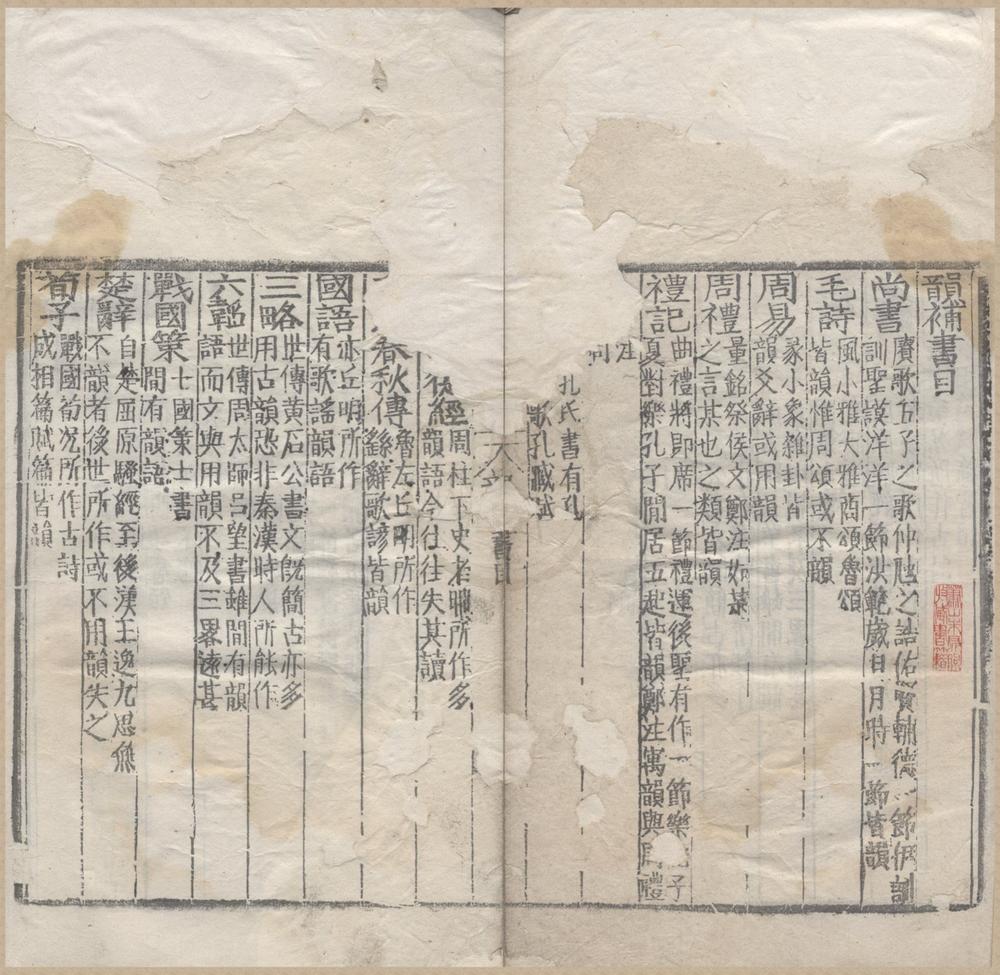 韻補書目
尚書
賡歌五子之歌仲虺之誥佑賢輔德一節伊訓
訓聖謨洋洋一節洪範歲日月時一節皆韻
毛詩
風小雅大雅商頌魯頌
皆韻惟周頌或不韻
周易
彖小象雜卦皆
韻爻辭或用韻
周禮
量銘祭侯文鄭注如某
之言某也之類皆韻
禮記
曲禮將即席一節禮運後聖有作一節樂子
夏對縣孔子閒居五起皆韻鄭注寓韻與周禮
注
同
孔氏書有孔
歌孔臧賦
書目
經
周柱下史老聃所作多
韻語今往往失其讀
春秋傳
魯左丘明所作
繇辭歌諺皆韻
國語
亦丘明所作
有歌謠韻語
三略
世傳黃石公書文旣簡古亦多
用古韻恐非秦漢時人所能作
六韜
世傳周太師呂望書雖間有韻
語而文與用韻不及三畧遠甚
戰國策
七國策士書
間有韻語
楚辭
自楚屈原騷經至後漢王逸九思無
不韻者後世所作或不用韻失之
荀子
戰國荀況所作古詩
成相篇賦篇皆韻